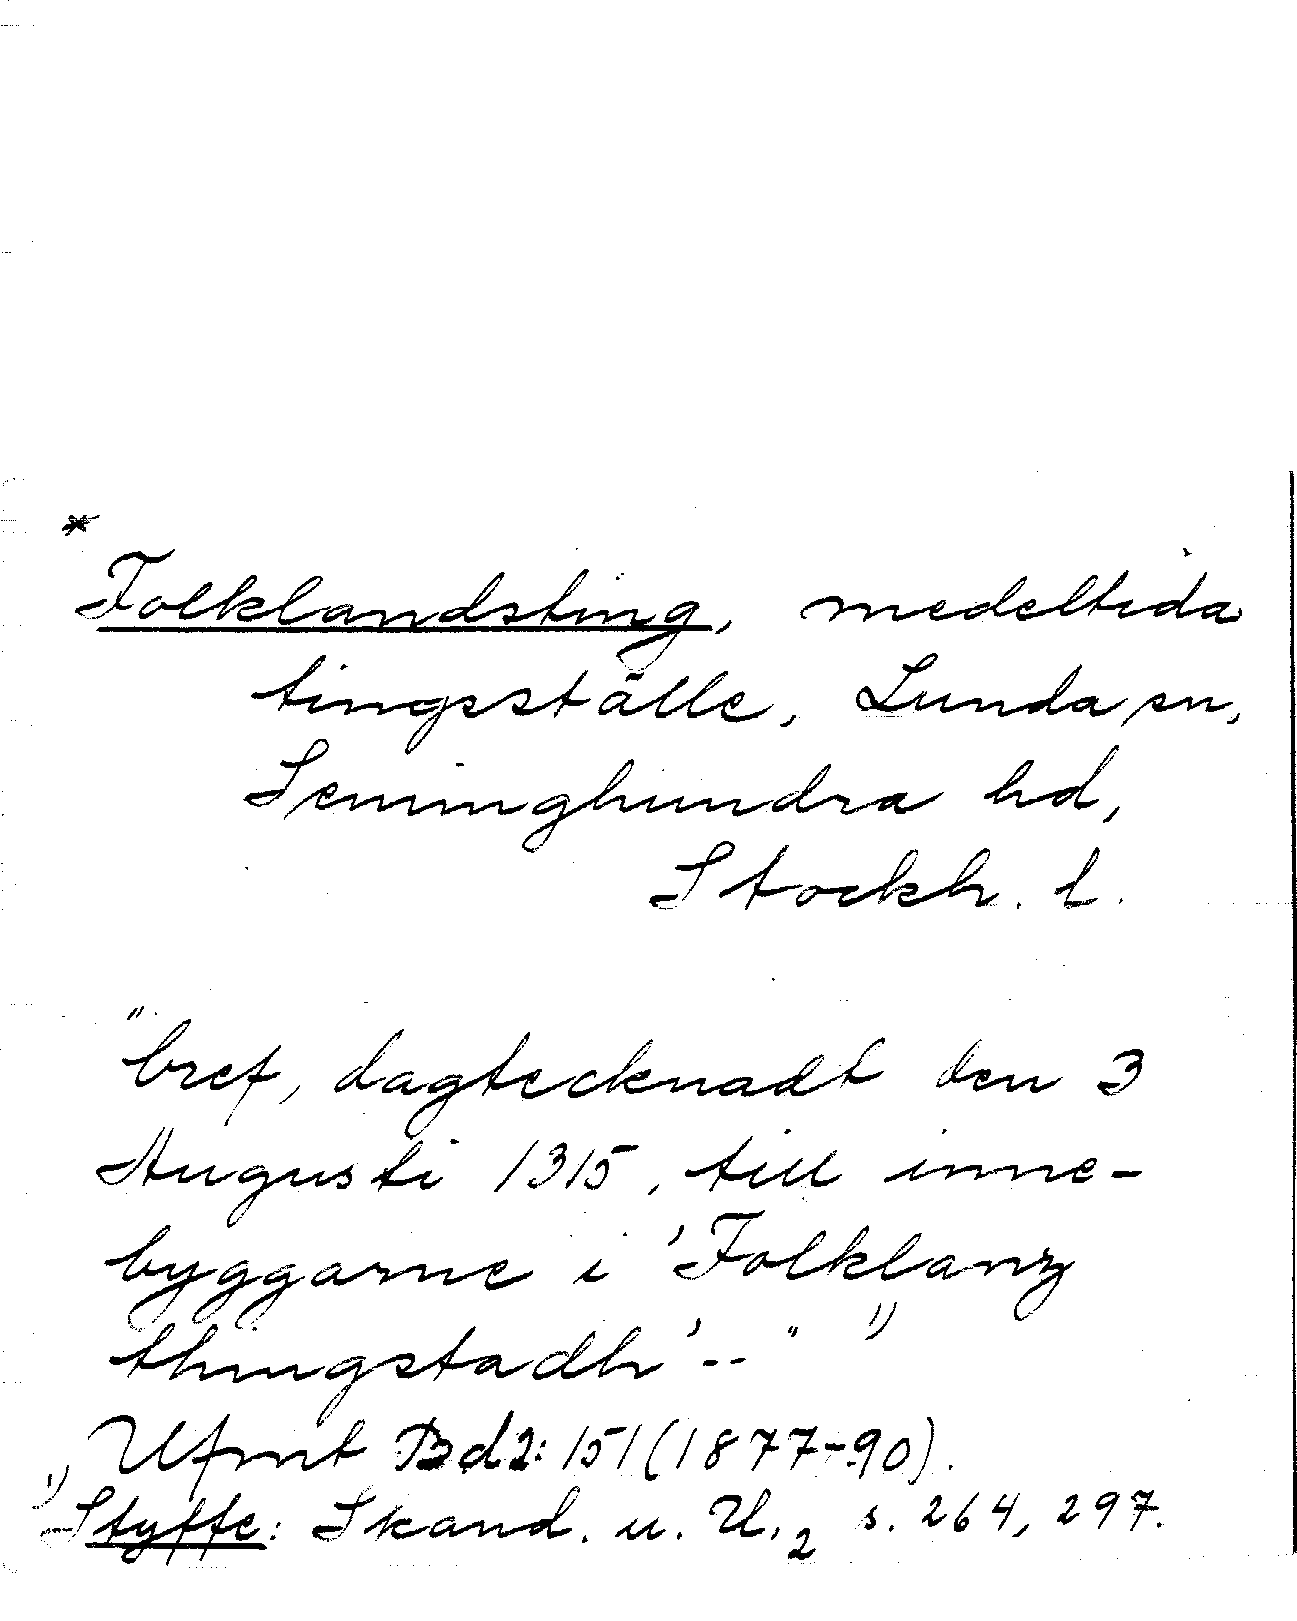 *
Folklandsting, medeltida
tingsställe, Lunda sn,
Seminghundra hd,
Stockh. l.
"bref, dagtecknadt den 3
Augusti 1315, till inne-
byggarne i 'Folklanz
thingstadh'--" 1)
Ufmt Bd2:151 (1877-90).
1) Styffe: Skand. u. U.2 s. 264, 297.